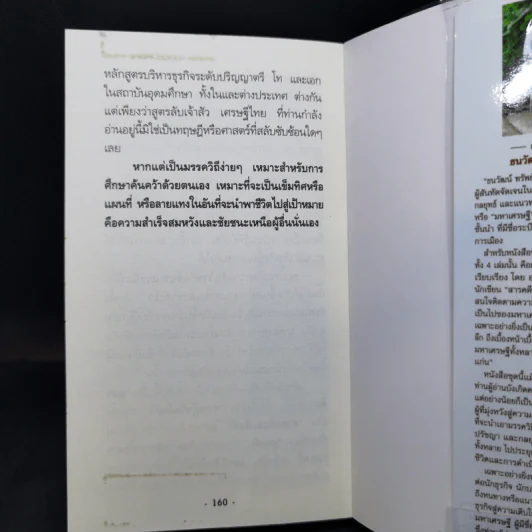 หลักสูตรบริหารธุรกิจระดับปริญญาตรี โท และเอก
ในสถาบันอุดมศึกษา ทั้งในและต่างประเทศ ต่างกัน
แต่เพียงว่าสูตรลับเจ้าสัว เศรษฐีไทย ที่ท่านกำลัง
อ่านอยู่นี้มิใช่เป็นทฤษฎีหรือศาสตร์ที่สลับซับซ้อนใดๆ
เลย
หากแต่เป็นมรรควิถีง่ายๆ เหมาะสำหรับการ
ศึกษาค้นคว้าด้วยตนเอง เหมาะที่จะเป็นเข็มทิศหรือ
แผนที่ หรือลายแทงในอันที่จะนำพาชีวิตไปสู่เป้าหมาย
คือความสำเร็จสมหวังและชัยชนะเหนือผู้อื่นนั่นเอง
- 160 -
"ธนวัฒน์ ทรัพย์
ผู้สันทัดจัดเจนใน
กลยุทธ์ และแนวท
หรือ "มหาเศรษฐี
ชั้นนำ ที่มีชื่อระบื
การเมือง
สำหรับหนังสือชุ
ทั้ง 4 เล่มนั้น คือผ
เรียบเรียง โดย อ
นักเขียน "สารคดี
สนใจติดตามความ
เป็นไปของมหาเศร
เฉพาะอย่างยิ่งเป็น
ลึก ถึงเบื้องหน้าเบื้
มหาเศรษฐีทั้งหลา
แก่น"
หนังสือชุดนี้แม้
ท่านผู้อ่านบังเกิดค
แต่อย่างน้อยก็เป็น
ผู้ที่มุ่งหวังสู่ความ
ที่จะนำเอามรรควิธี
ปรัชญา และกลยุ
ทั้งหลาย ไปประยุก
ชีวิตและการดำเนิ
เฉพาะอย่างยิ่
ต่อนักธุรกิจ นักบ
ถึงหนทางหรือแนว
ธุรกิจสู่ความเติบโ
มหาเศรษฐี ผู้มีชื่